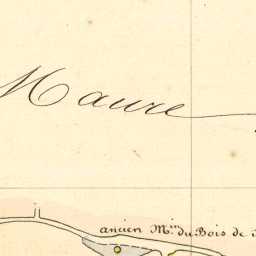 Maure
ancien M.in du Bois de